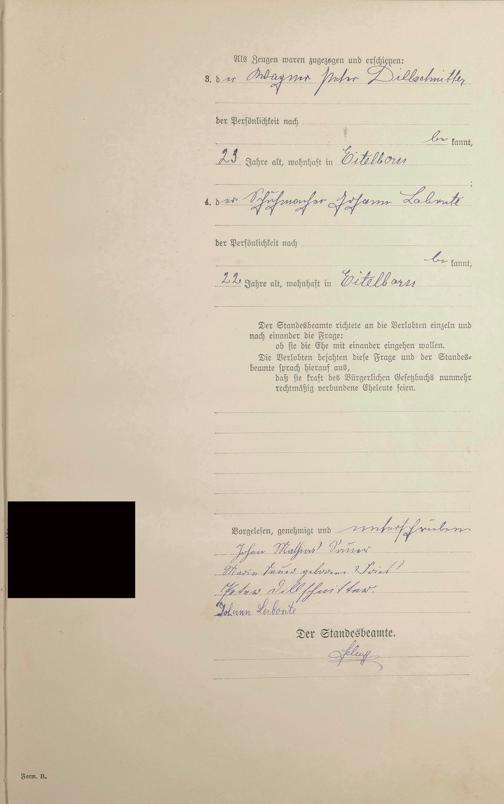 Als Zeugen waren zugezogen und erschienen:
3. der Wagner Peter Dillschnitter
der Persönlichkeit nach
bekannt,
23 Jahre alt, wohnhaft in Eitelborn
;
4. der Schuhmacher Johann Labonte
der Persönlichkeit nach
bekannt,
22 Jahre alt, wohnhaft in Eitelborn
Der Standesbeamte richtete an die Verlobten einzeln und
nach einander die Frage:
ob sie die Ehe mit einander eingehen wollen.
Die Verlobten bejahten diese Frage und der Standes-
beamte sprach hierauf aus,
daß sie kraft des Bürgerlichen Gesetzbuchs nunmehr
rechtmäßig verbundene Eheleute seien.
Vorgelesen, genehmigt und unterschrieben
Johan Mathias Sauer
Maria Sauer geborene
Peter Dillschnitter.
Johann Labonte
Der Standesbeamte.
Form. B.